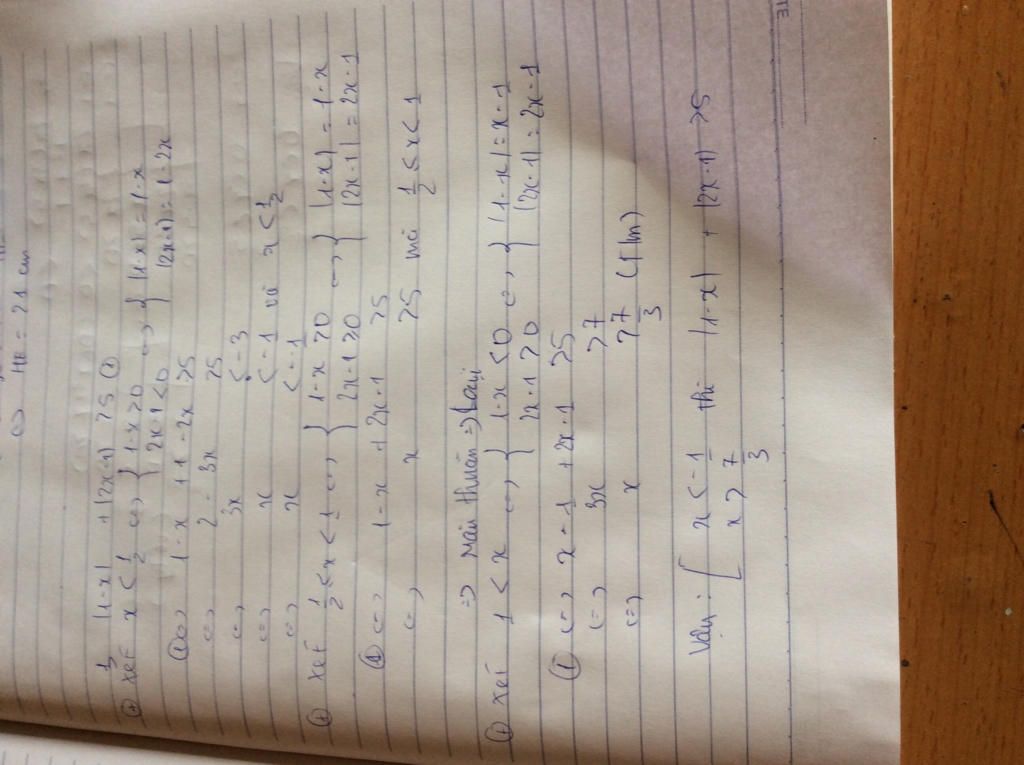 ⇔ HE = 21 cm
|1-x| + |2x-1| > 5 (1)
+ Xét x < 1/2 ⇔ { 1-x > 0 ⇔ { |1-x| = 1-x
2x-1 < 0 |2x-1| = 1-2x
(1) ⇔ 1-x + 1-2x > 5
⇔ 2-3x > 5
⇔ 3x < -3
⇔ x < -1 và x < 1/2
⇔ x < -1
+ Xét 1/2 ≤ x < 1 ⇔ { 1-x > 0 ⇔ { |1-x| = 1-x
2x-1 ≥ 0 |2x-1| = 2x-1
(1) ⇔ 1-x + 2x-1 > 5
⇔ x > 5 mà 1/2 ≤ x < 1
⇒ Mâu thuẫn ⇒ Loại
+ Xét 1 < x ⇔ { 1-x < 0 ⇔ { |1-x| = x-1
2x-1 > 0 |2x-1| = 2x-1
(1) ⇔ x-1 + 2x-1 > 5
⇔ 3x > 7
⇔ x > 7/3 (t/m)
Vậy : [ x < -1 thì |1-x| + |2x-1| > 5
x > 7/3